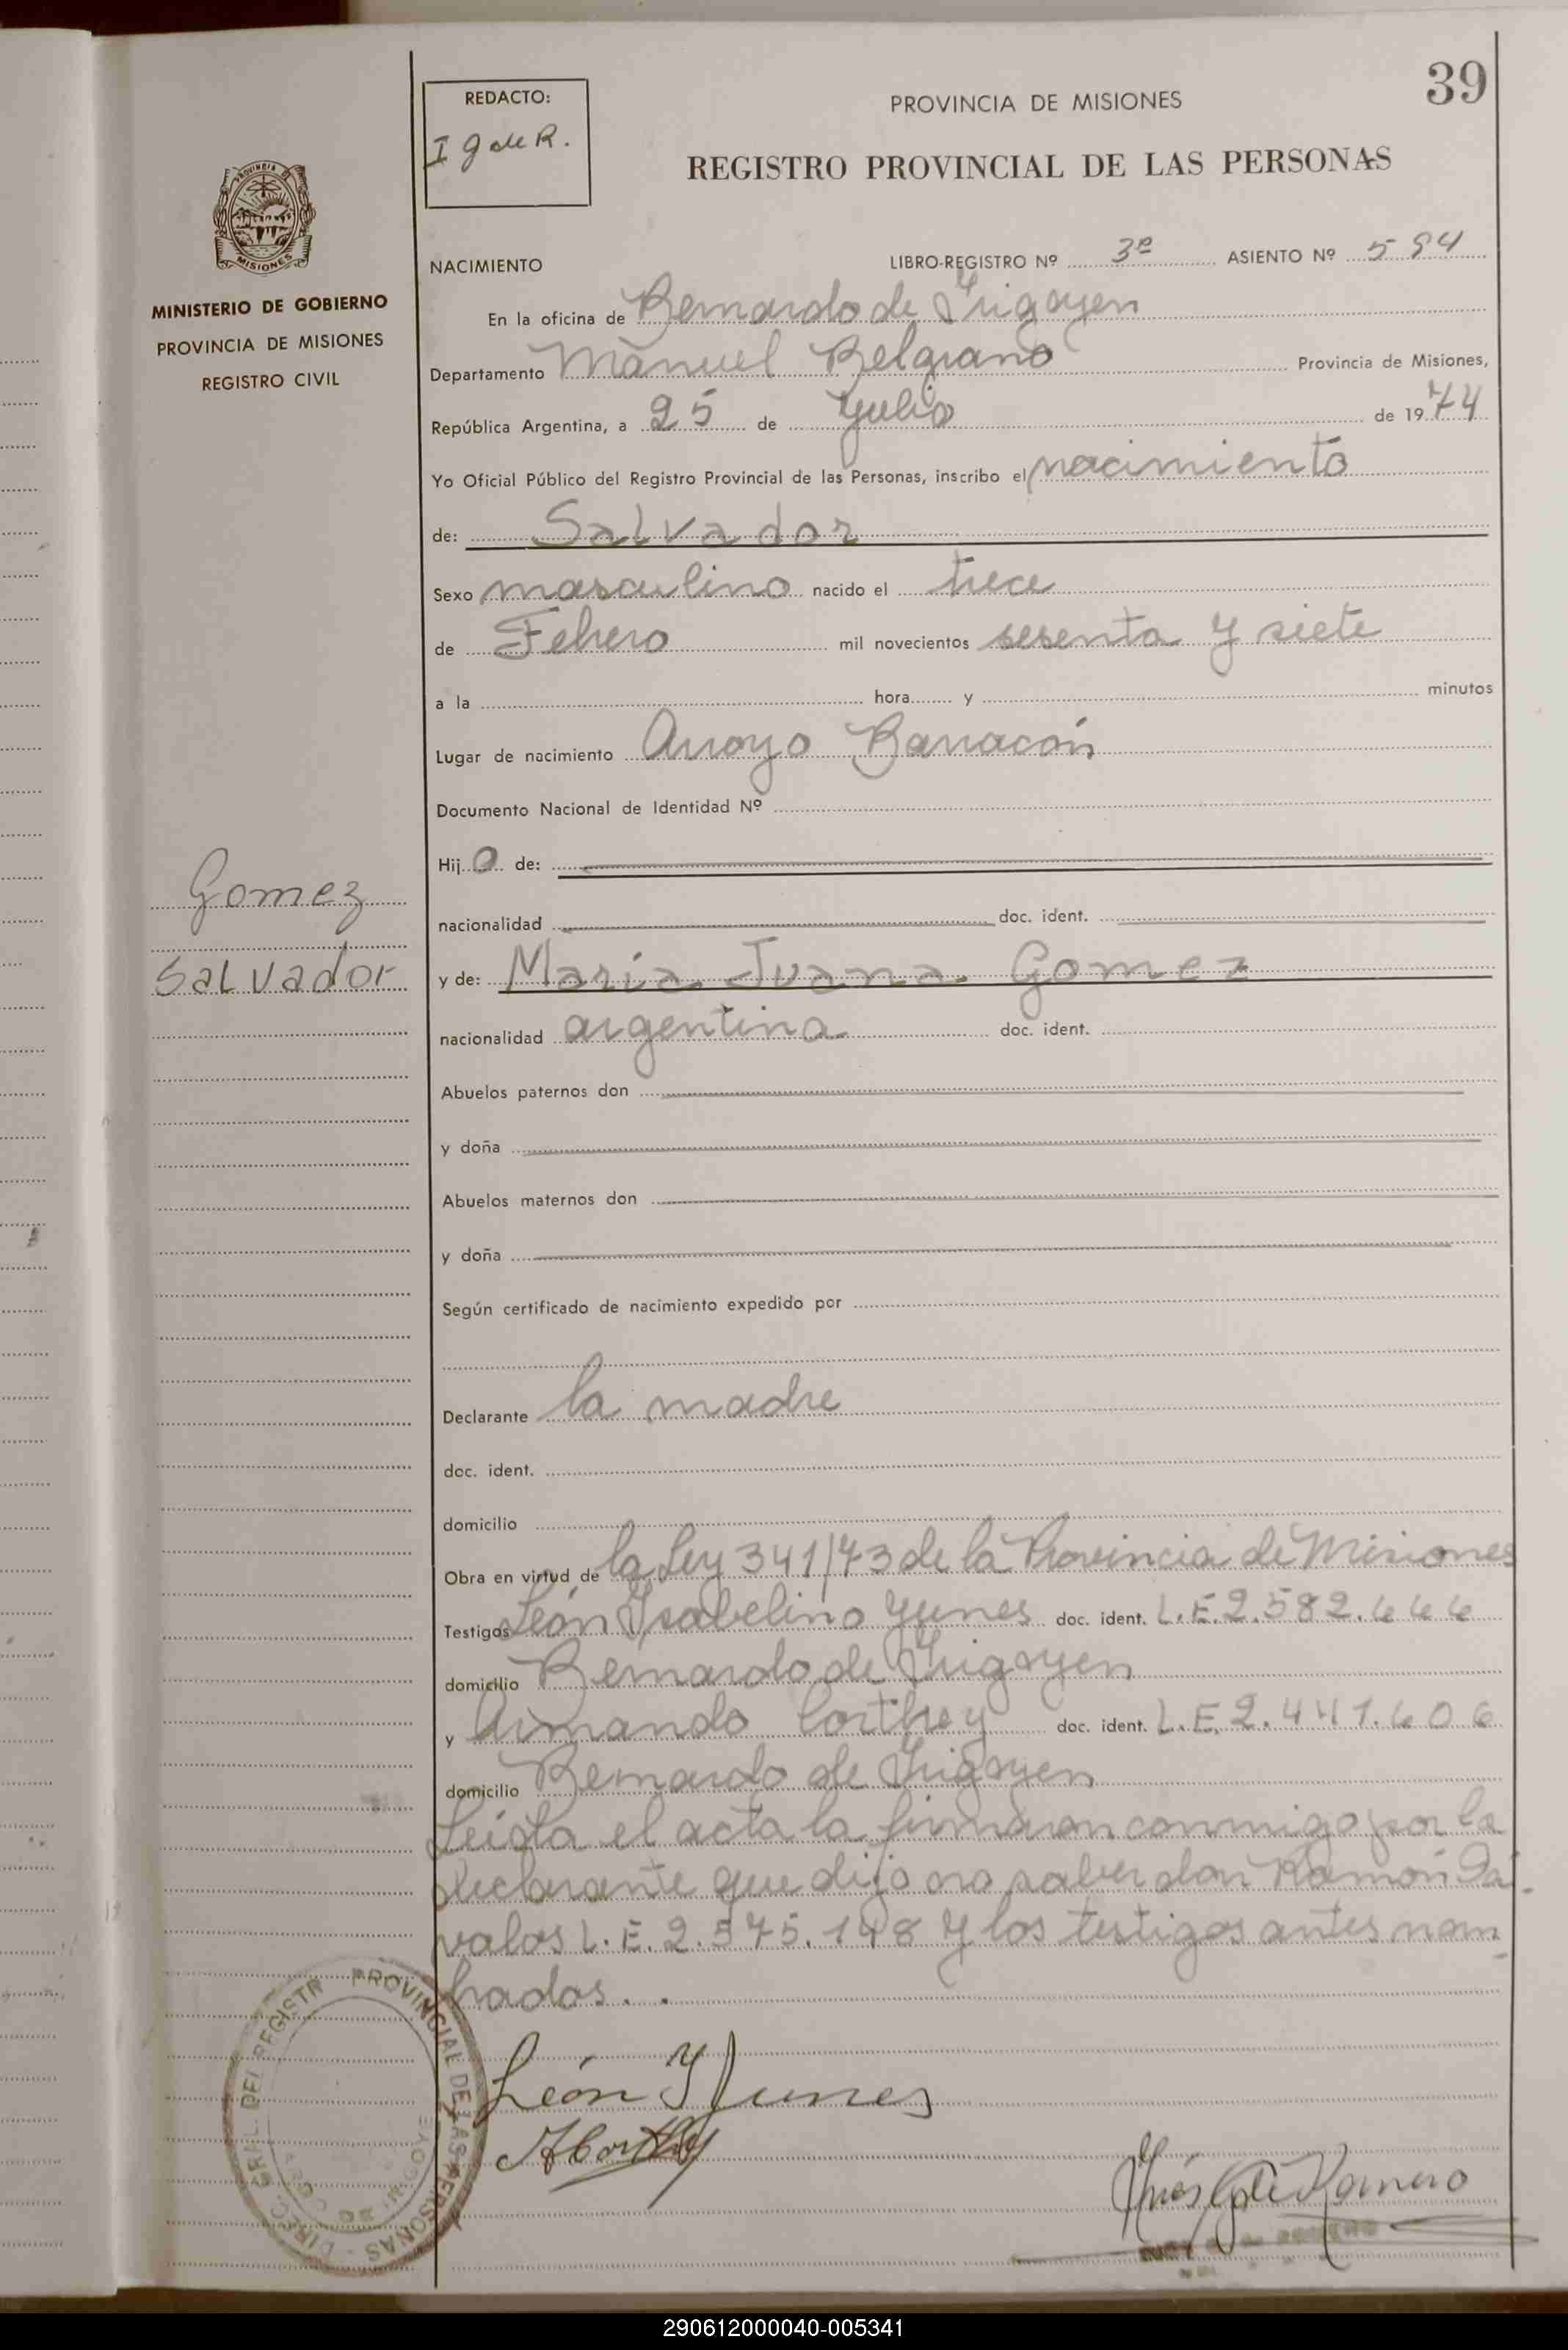 39
REDACTO:
I G de R.
PROVINCIA DE MISIONES
REGISTRO PROVINCIAL DE LAS PERSONAS
MISIONES
MINISTERIO DE GOBIERNO
PROVINCIA DE MISIONES
REGISTRO CIVIL
NACIMIENTO LIBRO-REGISTRO Nº 3º ASIENTO Nº 594
En la oficina de Bernardo de Irigoyen
Departamento Manuel Belgrano Provincia de Misiones,
República Argentina, a 25 de Julio de 1974
Yo Oficial Público del Registro Provincial de las Personas, inscribo el nacimiento
de: Salvador
Sexo masculino nacido el trece
de Febrero mil novecientos sesenta y siete
a la hora y minutos
Lugar de nacimiento Arroyo Barracón
Documento Nacional de Identidad Nº
Hijo de:
nacionalidad doc. ident.
Gomez
Salvador
y de: Maria Juana Gomez
nacionalidad argentina doc. ident.
Abuelos paternos don
y doña
Abuelos maternos don
y doña
Según certificado de nacimiento expedido por
Declarante la madre
doc. ident.
domicilio
Obra en virtud de la Ley 341/73 de la Provincia de Misiones
Testigos León Ysabelino Yunes doc. ident. L.E.2.582.666
domicilio Bernardo de Irigoyen
y Armando Corthey doc. ident. L.E.2.441.606
domicilio Bernardo de Irigoyen
Leida el acta la firmaron conmigo por la
declarante que dijo no saber don Ramón Dá-
valos L.E.2.575.148 y los testigos antes nom-
brados..
León Y Yunes
ACorthey
Inés G de Romero
DIREC. GRAL. DEL REGISTR PROVINCIAL DE LAS PERSONAS
290612000040-005341